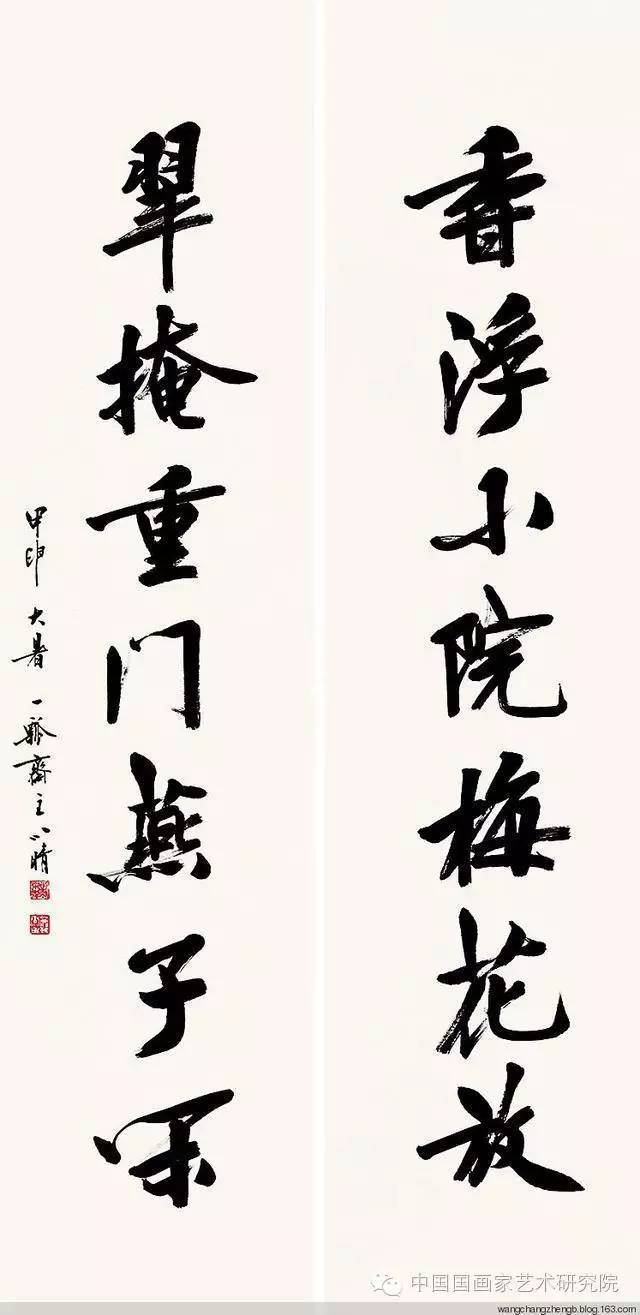 香浮小院梅花放
翠掩重门燕子
甲申大暑一瓢齋主
中国国画家艺术研究院
wangchangzhengb.blog.163.com